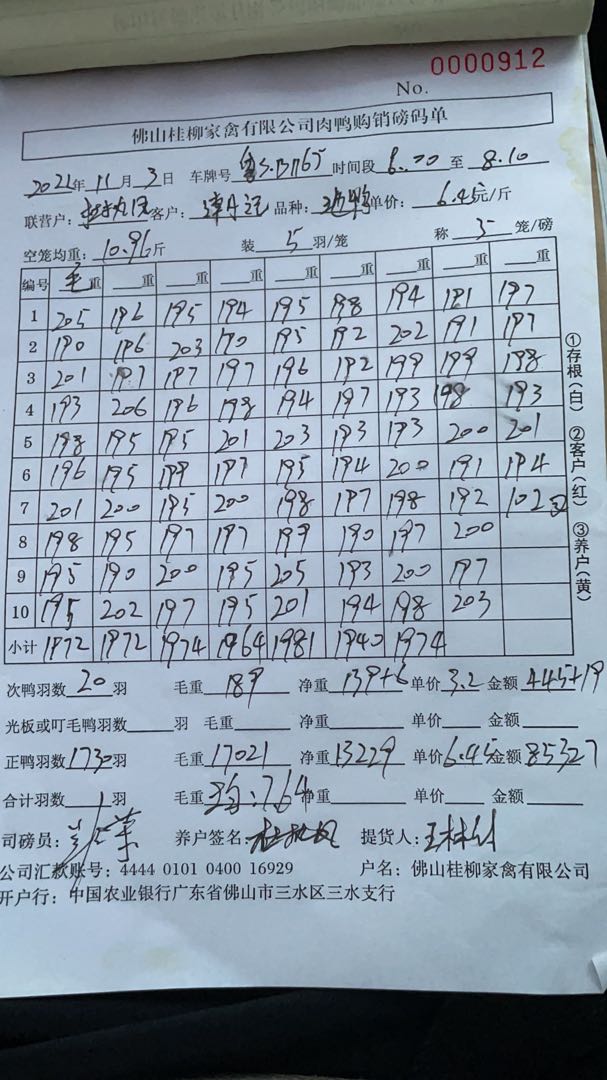 0000912
No.
佛山桂柳家禽有限公司肉鸭购销磅码单
2021年 11月 3日 车牌号 时间段 6.20 至 8.10
联营户: 客户: 谭丹记 品种: 单价: 6.45元/斤
空笼均重: 10.96斤 装 5 羽/笼 称 3 笼/磅
编号 毛重 重 重 重 重 重 重 重 重
1 205 196 195 194 195 198 194 181 197
2 190 196 203 190 195 192 202 191 197
3 201 197 197 197 196 192 199 199 198
4 193 206 196 198 194 197 193 198 193
5 198 195 195 201 203 193 193 200 201
6 196 195 199 197 195 194 200 191 194
7 201 200 195 200 198 197 198 192 102
8 198 195 197 197 199 190 197 200
9 195 190 200 195 205 193 200 197
10 195 202 197 195 201 194 198 203
小计 1972 1972 1974 1964 1981 1940 1974
①存根(白) ②客户(红) ③养户(黄)
次鸭羽数 20 羽 毛重 189 净重 139+6 单价 3.2 金额 445+19
光板或叮毛鸭羽数 羽 毛重 净重 单价 金额
正鸭羽数 1730羽 毛重 17021 净重 13229 单价 6.45 金额 85327
合计羽数 羽 毛重 均:7.64 净重 单价 金额
司磅员: 养户签名: 提货人:
公司汇款账号: 4444 0101 0400 16929 户名: 佛山桂柳家禽有限公司
开户行: 中国农业银行广东省佛山市三水区三水支行